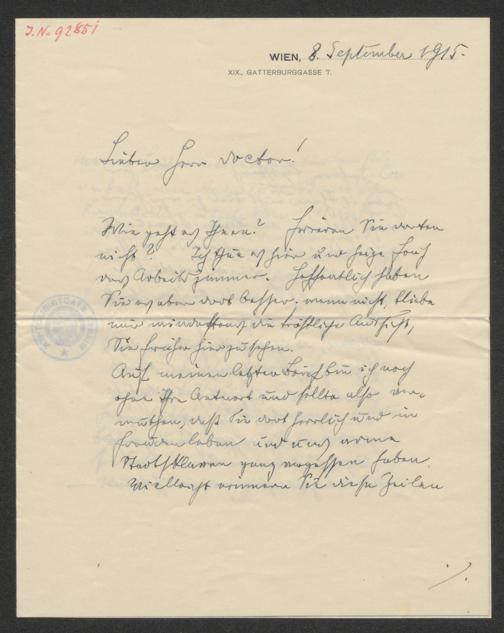 J.N. 92851
WIEN, 8. September 1915.
XIX., GATTERBURGGASSE 7.
Lieber Herr Doctor!
Wie geht es Ihnen? Frieren Sie dorten
nicht? Ich thue es hier und heize
das Arbeitszimmer. Hoffentlich haben
Sie es aber dort besser; wenn nicht, bliebe
mir mindestens die tröstliche Aussicht,
Sie früher hier zu sehen.
Auf meinen letzten Brief bin ich noch
ohne Ihre Antwort und sollte also ver-
muthen, daß Sie dort herrlich und in
Freuden leben und uns arme
Stadtsklaven ganz vergessen haben.
Vielleicht erinnern Sie diese Zeilen
./.